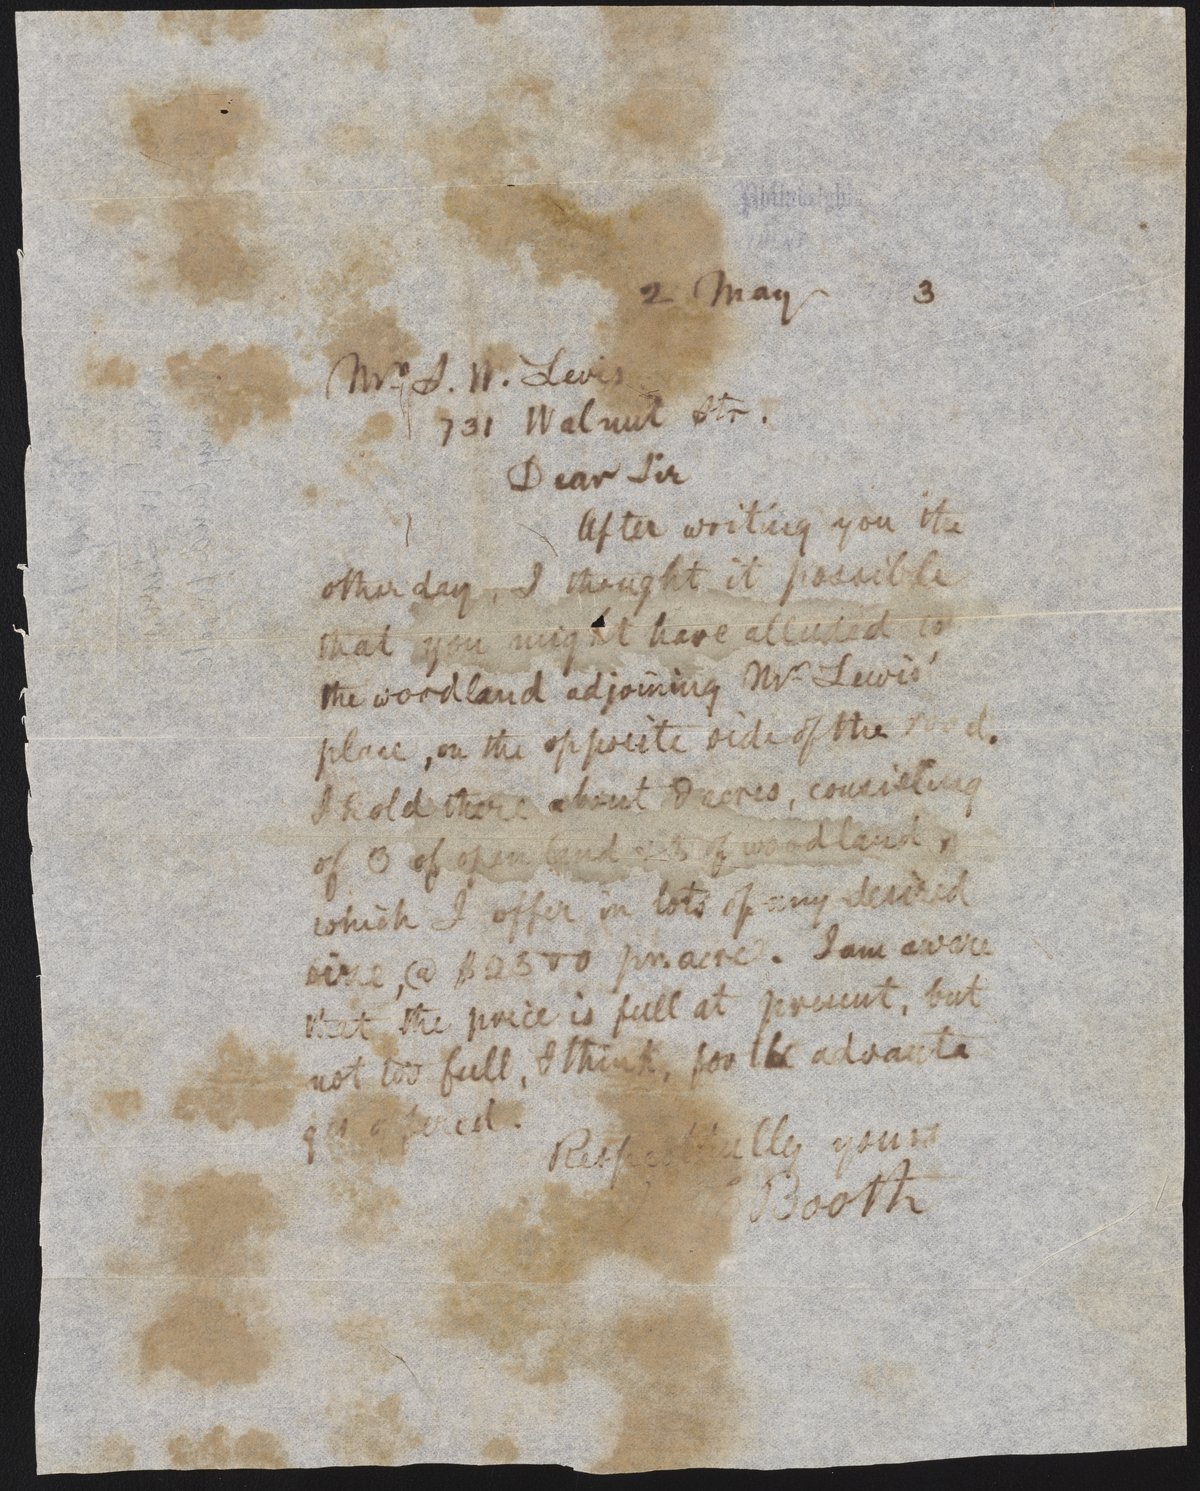 Philadelphia
2 May 3
Mr. S. W. Lewis
731 Walnut Str.
Dear Sir
After writing you the
other day, I thought it possible
that you might have alluded to
the woodland adjoining Mrs Lewis'
place, on the opposite side of the road.
I hold there about 8 acres, consisting
of 3 of open land & 5 of woodland,
which I offer in lots of any desired
size, @ $2500 pr. acre. I am aware
that the price is full at present, but
not too full, I think, for the advanta
ges offered.
Respectfully yours
Booth